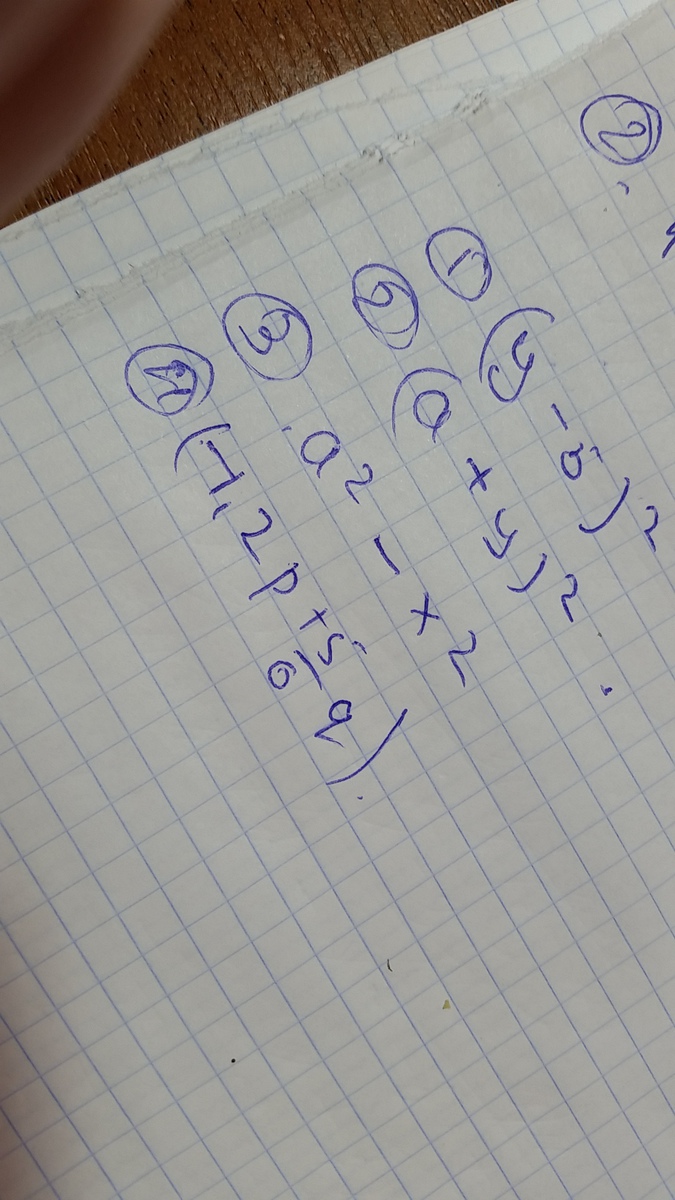 ②
① (y - b)²
② (a + y)²
③ a² - x²
④ (-1,2p + 5/6 q)